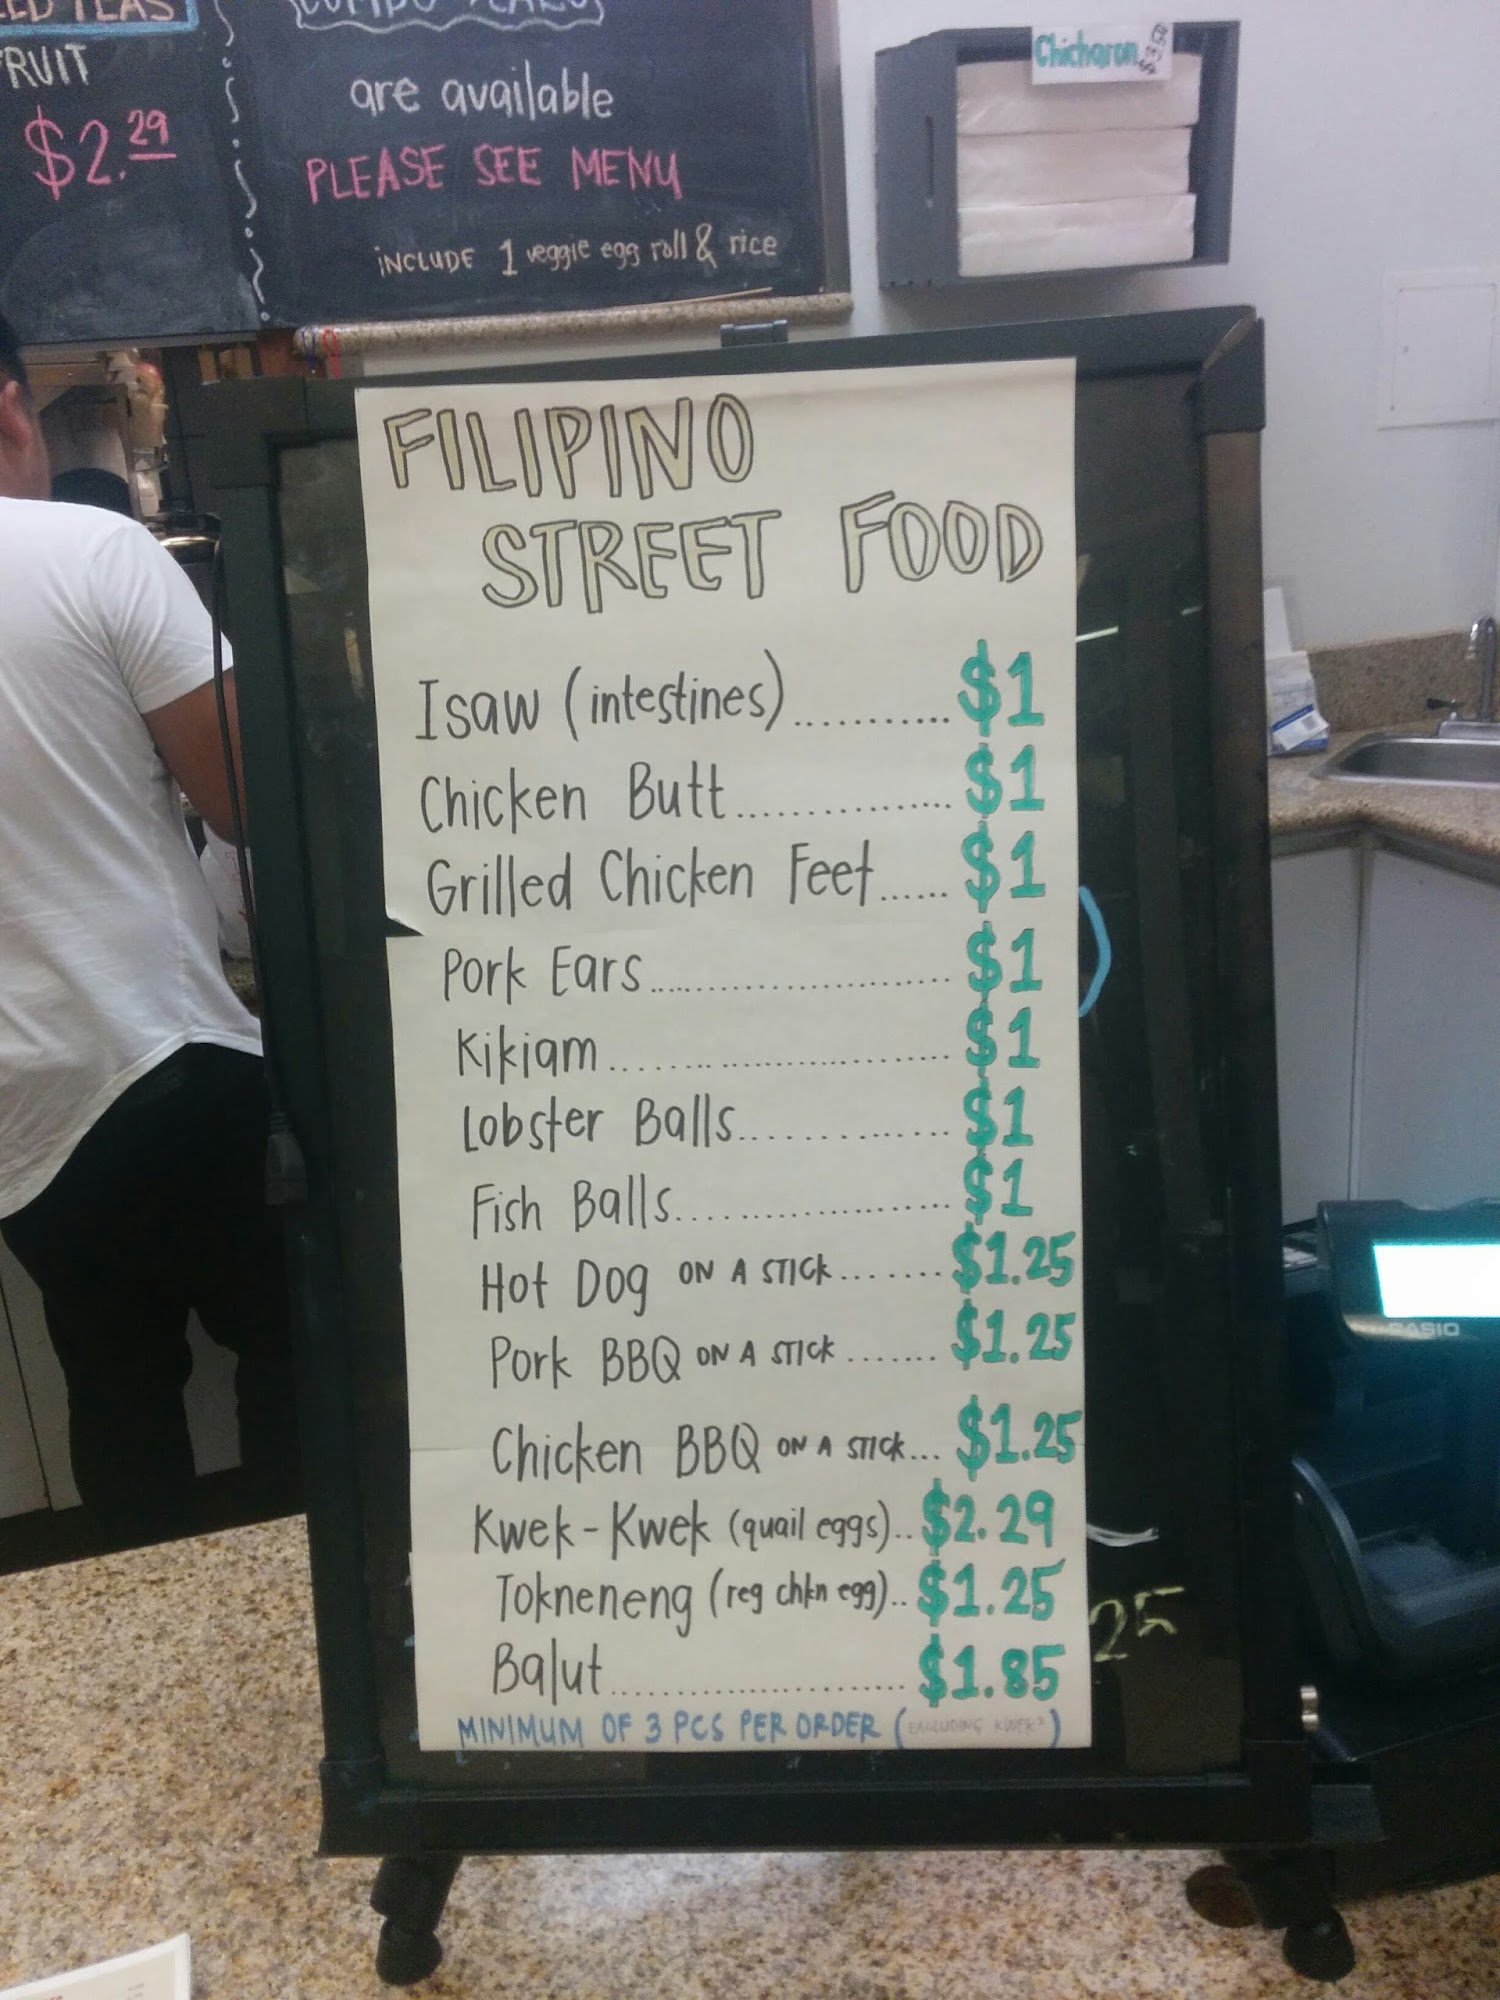 FRUIT
$2.29
are available
PLEASE SEE MENU
iNCLUDE 1 veggie egg roll & rice
Chicharon $3.50
FILIPINO
STREET FOOD
Isaw (intestines)........... $1
Chicken Butt................ $1
Grilled Chicken Feet...... $1
Pork Ears........................... $1
Kikiam............................. $1
Lobster Balls................ $1
Fish Balls...................... $1
Hot Dog ON A STICK....... $1.25
Pork BBQ ON A STICK....... $1.25
Chicken BBQ ON A STICK... $1.25
Kwek-Kwek (quail eggs).. $2.29
Tokneneng (reg chkn egg).. $1.25
Balut........................ $1.85
MINIMUM OF 3 PCS PER ORDER (EXCLUDING KWEK²)
25
CASIO